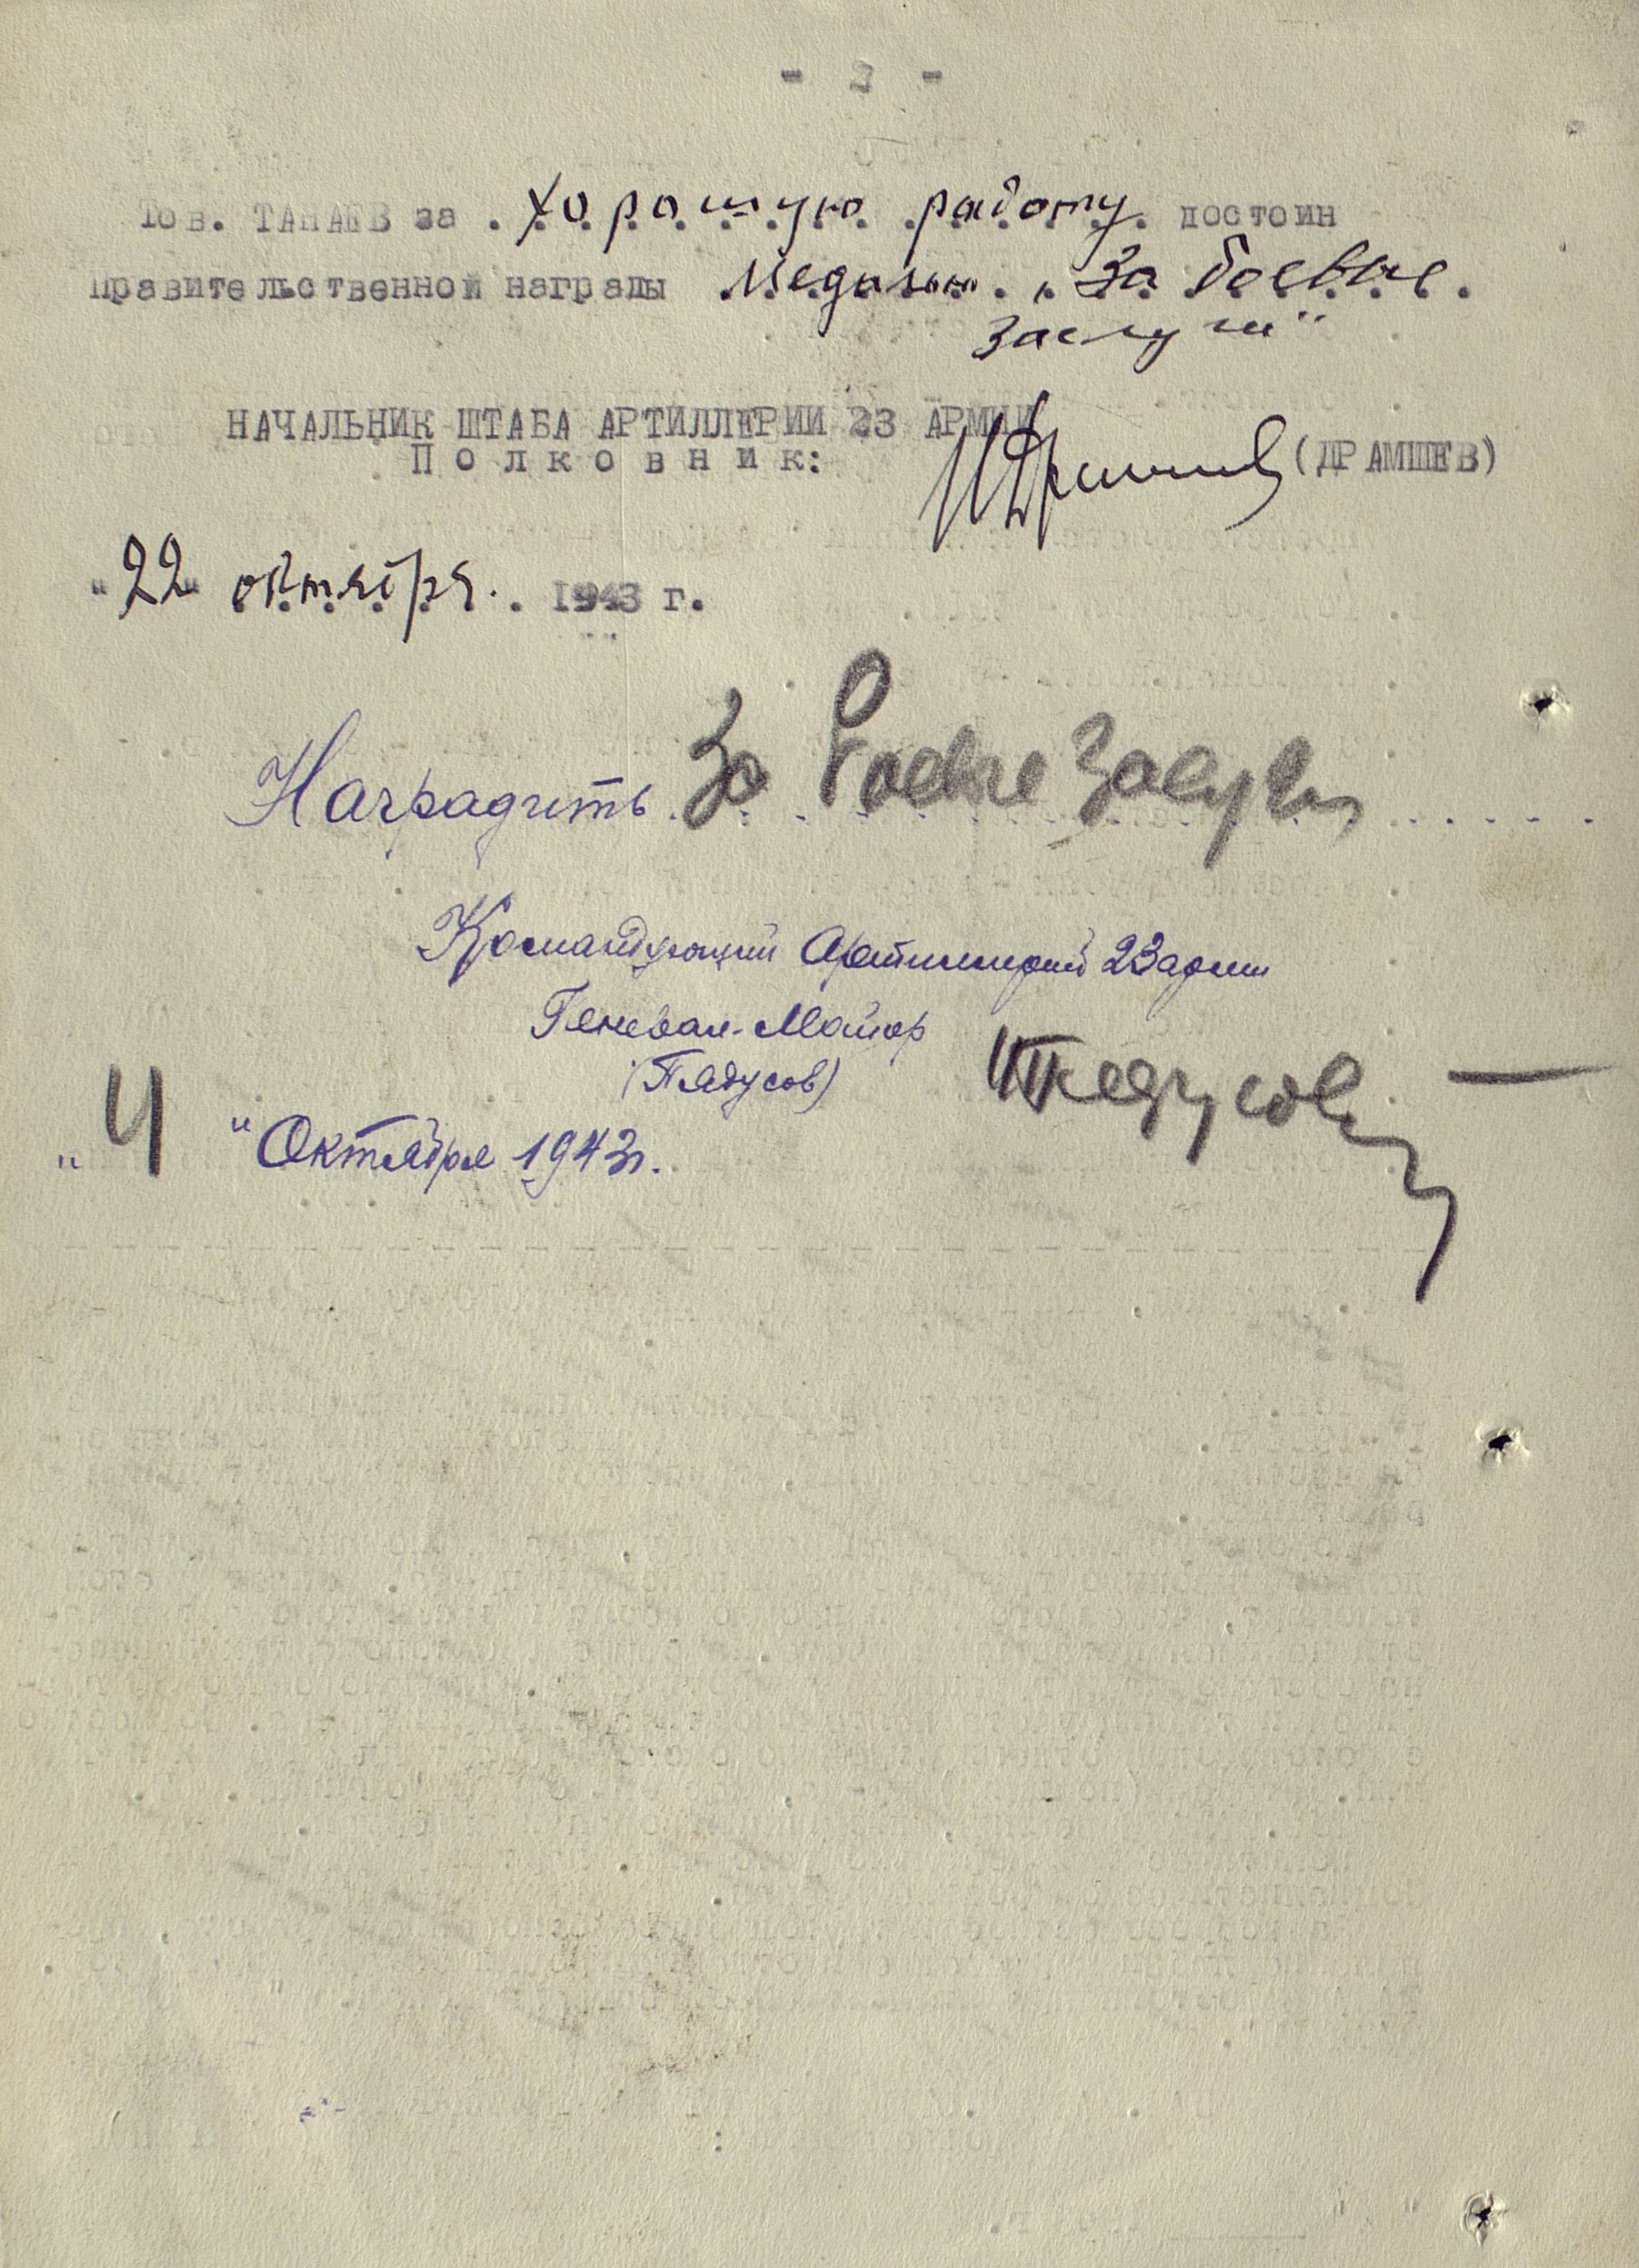 - 2 -
Тов. ТАНАЕВ за хорошую работу достоин
правительственной награды медалью „За боевые
заслуги"
НАЧАЛЬНИК ШТАБА АРТИЛЛЕРИИ 23 АРМИИ
Полковник: (ДРАМШЕВ)
"22" октября 1943 г.
Наградить За боевые заслуги
Командующий Артиллерией 23 армии
Генерал-Майор
(Пядусов)
Пядусов
" " Октября 1943г.